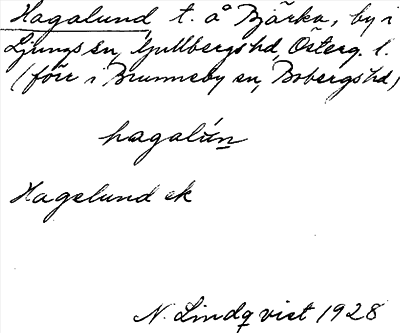 Hagalund, t. å Bjärka, by i
Ljungs sn, Gullbergs hd, Österg. l.
(förr i Brunneby sn, Bobergs hd)
hagalún
Hagelund ek
N. Lindqvist 1928